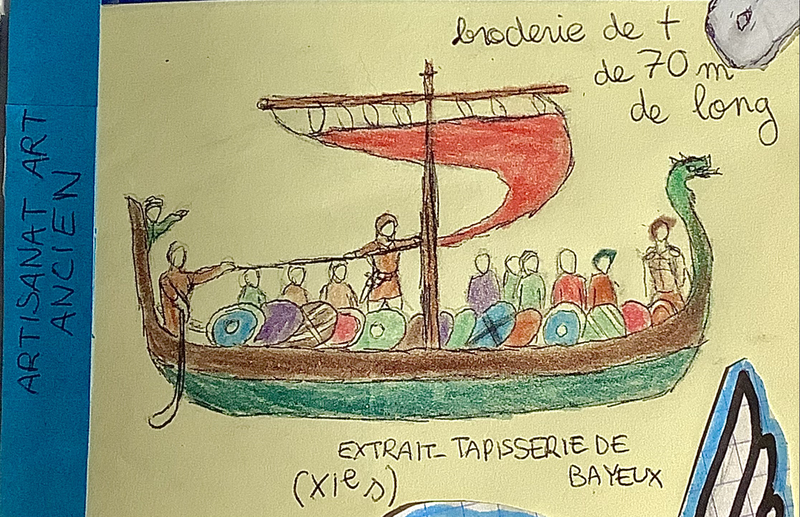 broderie de +
de 70 m
de long
ARTISANAT ART
ANCIEN
EXTRAIT_ TAPISSERIE DE
BAYEUX
(XIe s)